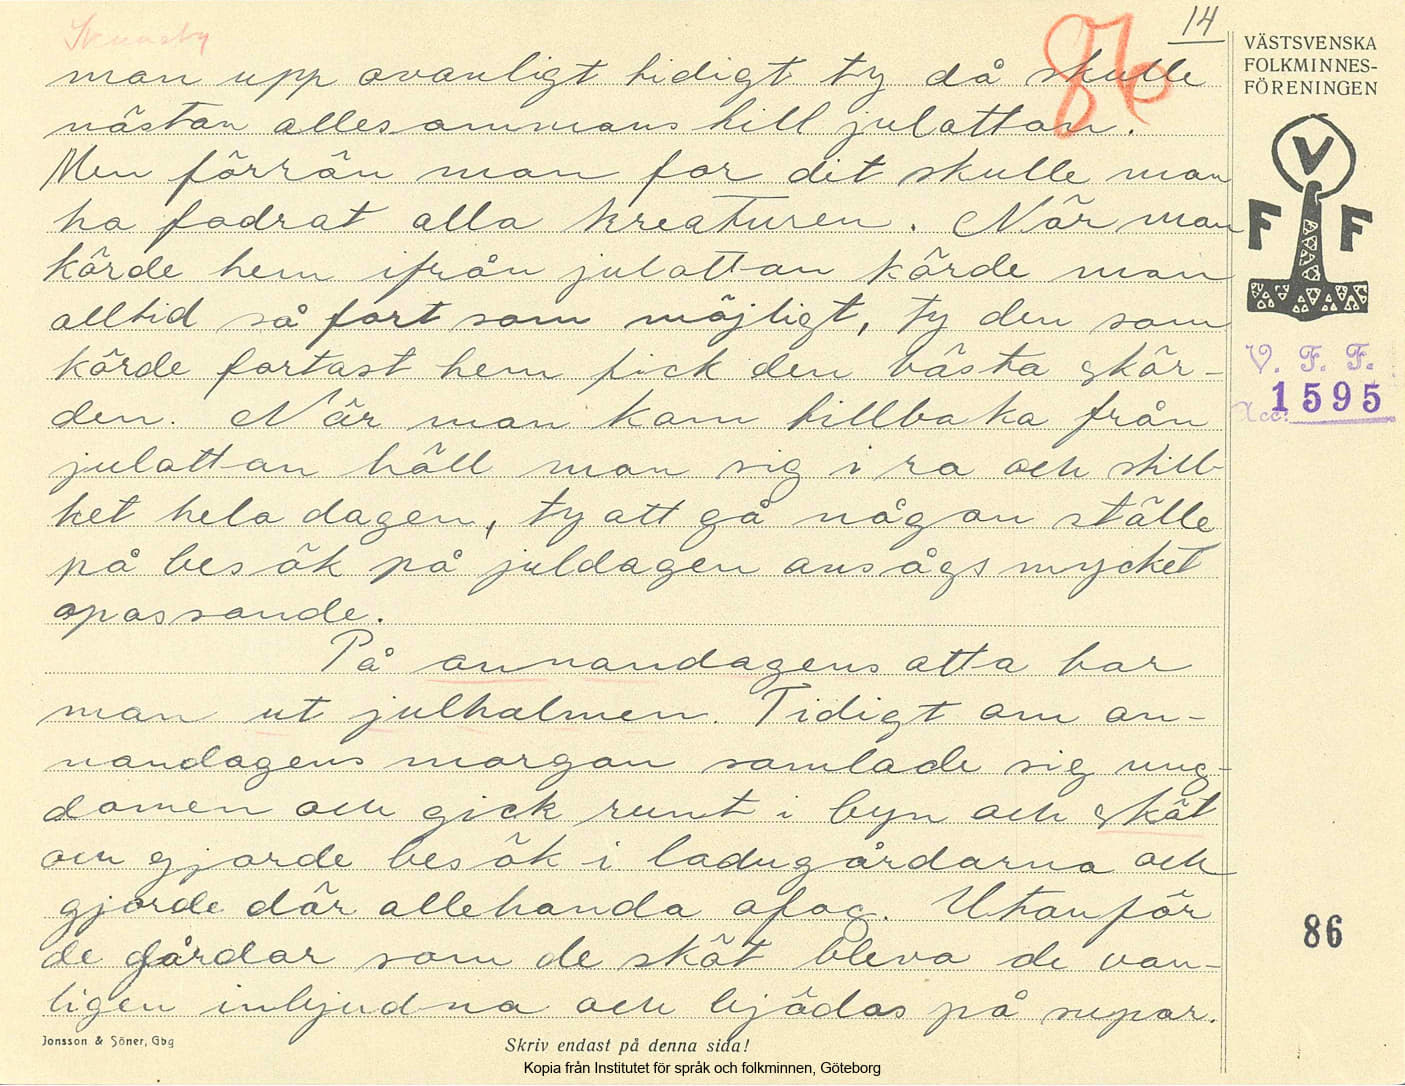 14
86
man upp ovanligt tidigt ty då skulle
nästan allesammans till julottan.
Men förrän man for dit skulle man
ha fodrat alla kreaturen. När man
körde hem ifrån julottan körde man
alltid så fort som möjligt, ty den som
körde fortast hem fick den bästa skör-
den. När man kom tillbaka från
julottan höll man sig i ro och still-
het hela dagen, ty att gå någon ställe
på besök på juldagen ansågs mycket
opassande.
På annandagens otta bar
man ut julhalmen. Tidigt om an-
nandagens morgon samlade sig ung-
domen och gick runt i byn och sköt
och gjorde besök i ladugårdarna och
gjorde där allehanda ofog. Utanför
de gårdar som de sköt bleva de van-
ligen inbjudna och bjödos på supar.
VÄSTSVENSKA
FOLKMINNES-
FÖRENINGEN
V
F F
V. F. F.
Acc: 1595
86
Jonsson & Söner, Gbg
Skriv endast på denna sida!
Kopia från Institutet för språk och folkminnen, Göteborg